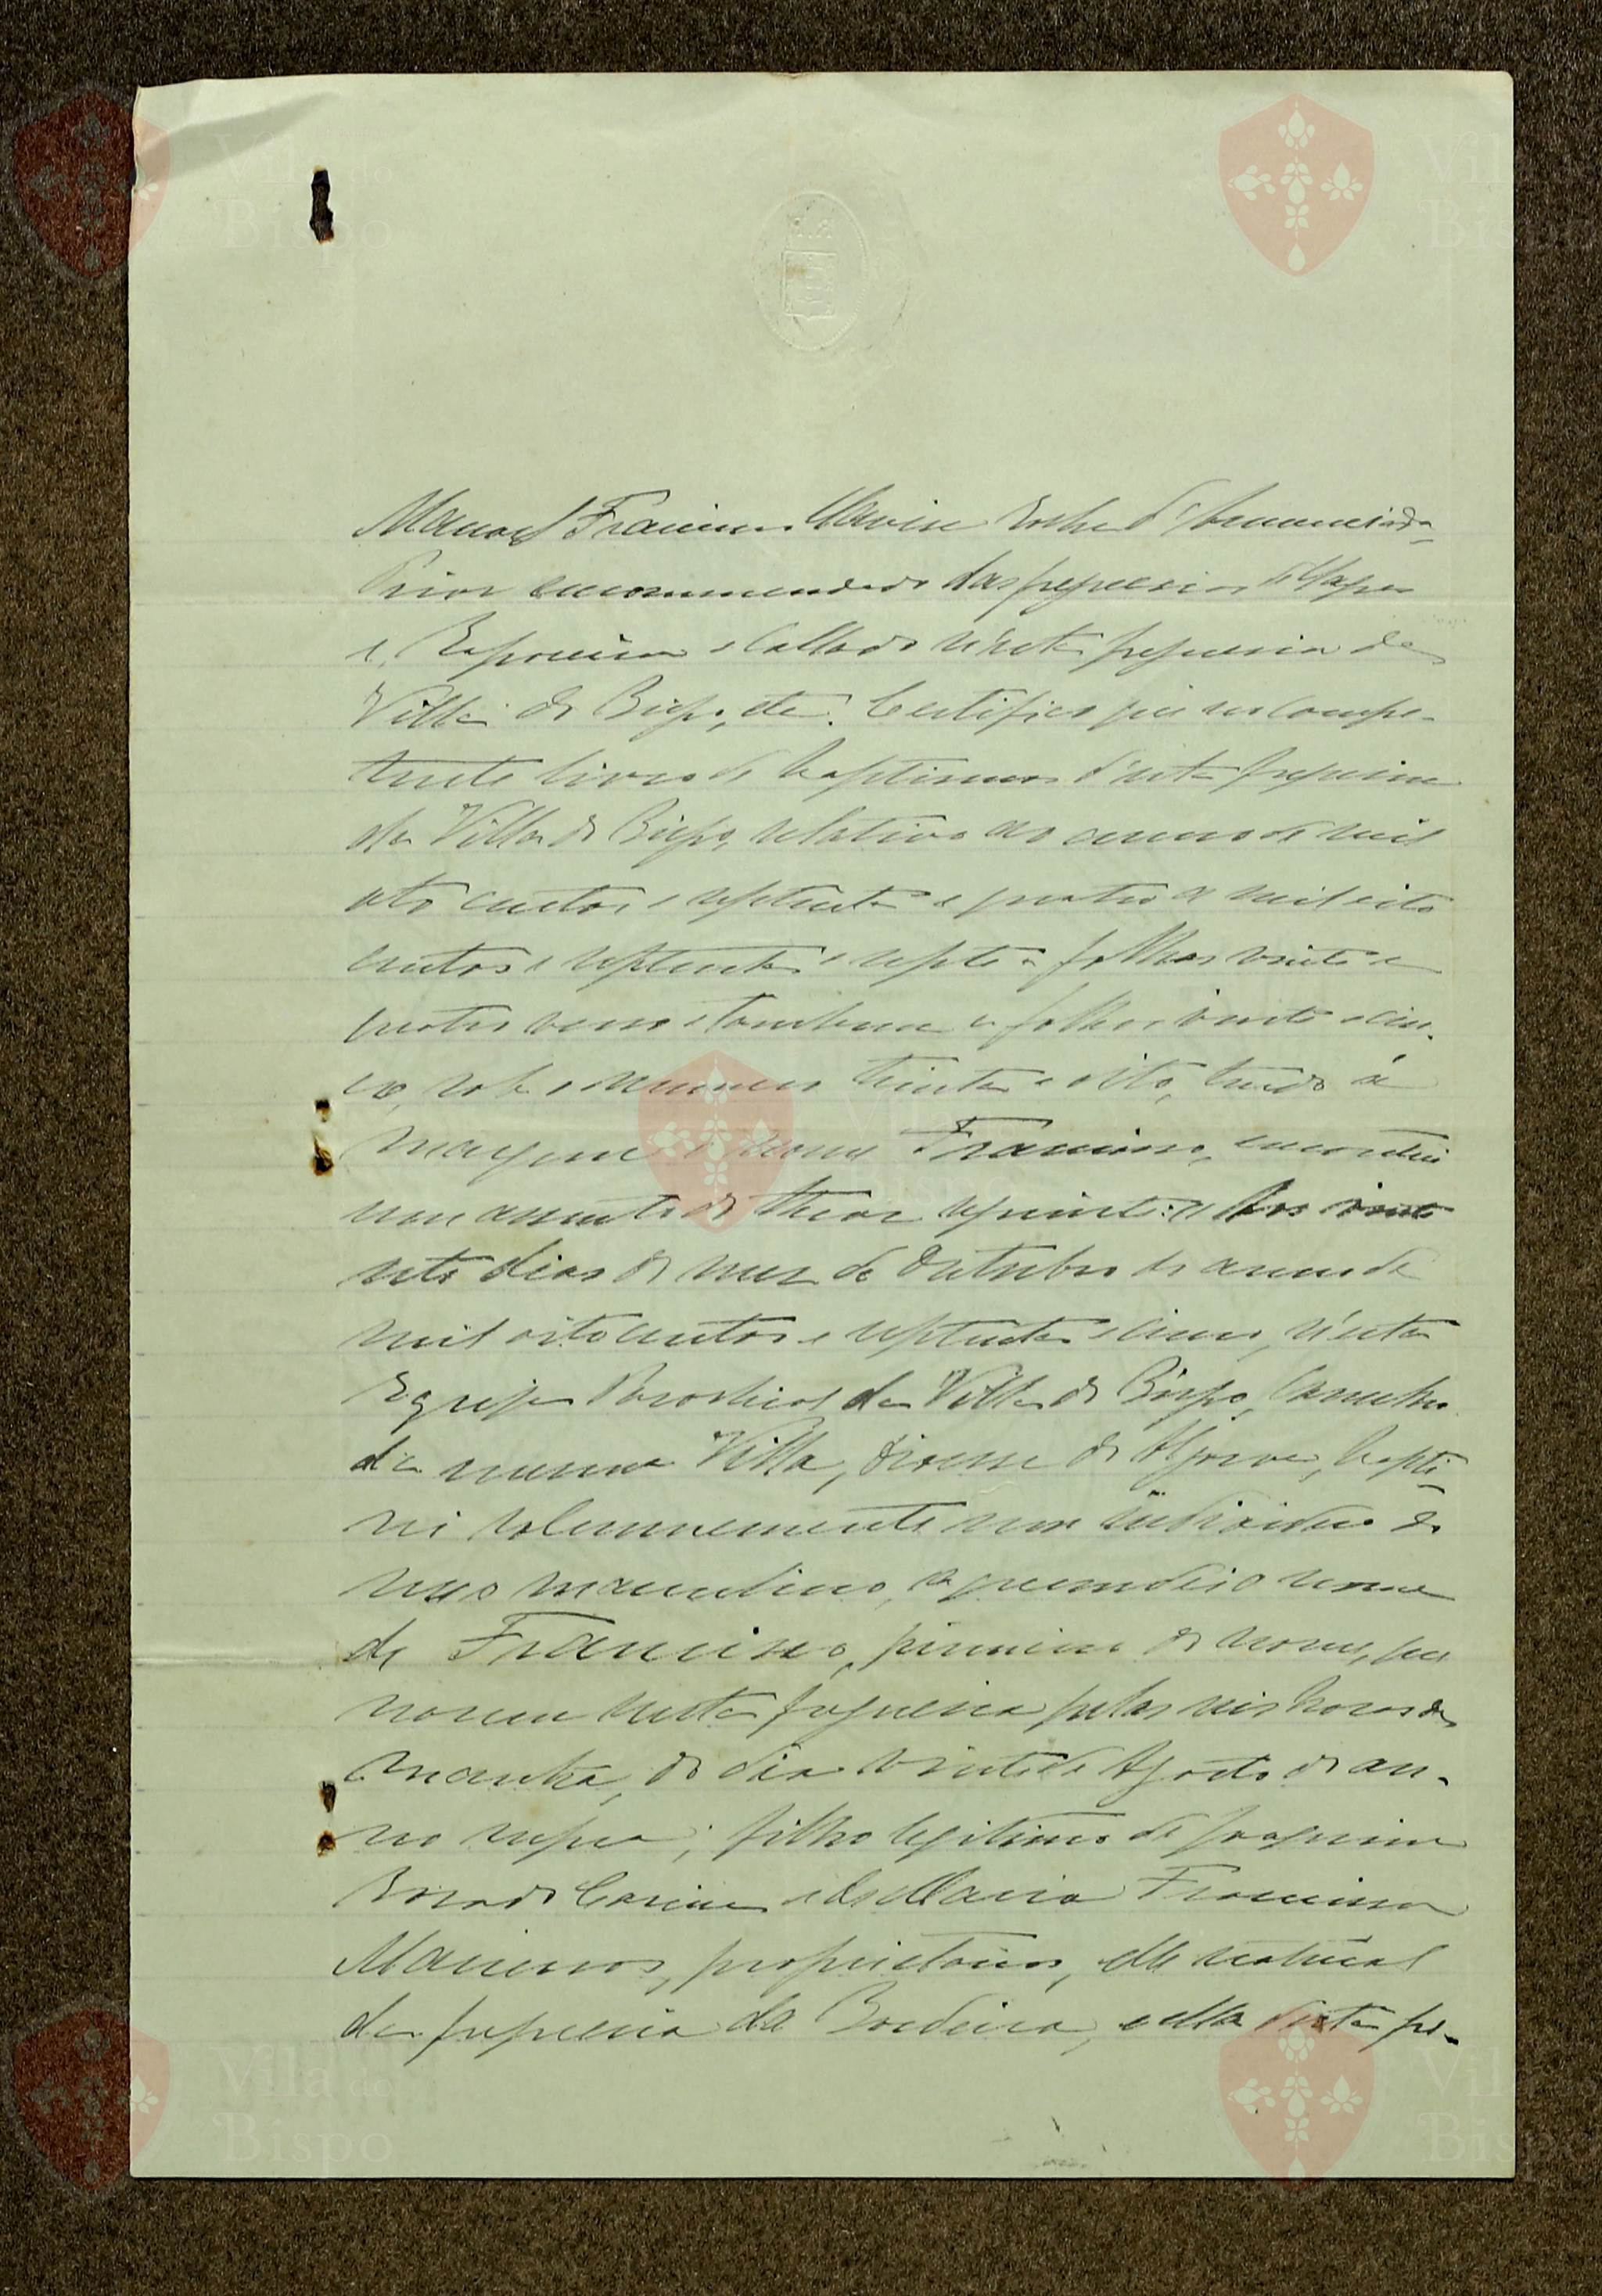 Manoel Francisco d'Annunciada
Prior encommendado das freguezias
e Raposeira e Collado n'esta freguezia da
Villa do Bispo, etc. Certifico que no compe-
tente livro de baptismos d'esta freguezia
da Villa do Bispo, relativo ao anno de mil
oito centos e septenta e quatro a mil oito
centos e septenta e septe a folhas vinte e
quatro verso e tambem a folhas vinte e cin-
co, sob o numero trinta e oito, tendo á
margem o nome Francisco, encontrei
um assento do theor seguinte: Aos vinte
sete dias do mez de Outubro do anno de
mil oito centos e septenta e cinco, n'esta
Egreja Parochial da Villa do Bispo, Concelho
da mesma Villa, Diocese do Algarve, bapti-
sei solemnemente um individuo do
sexo masculino, a quem dei o nome
de Francisco, primeiro do nome, que
nasceu nesta freguezia pelas seis horas da
manhã, do dia vinte de Agosto do an-
no supra; filho legitimo de Joaquim
Rosado Correia e de Maria Francisca
Marreiros, proprietarios, elle natural
da freguezia da Bordeira, e ella d'esta fre-
Vila do
Bispo